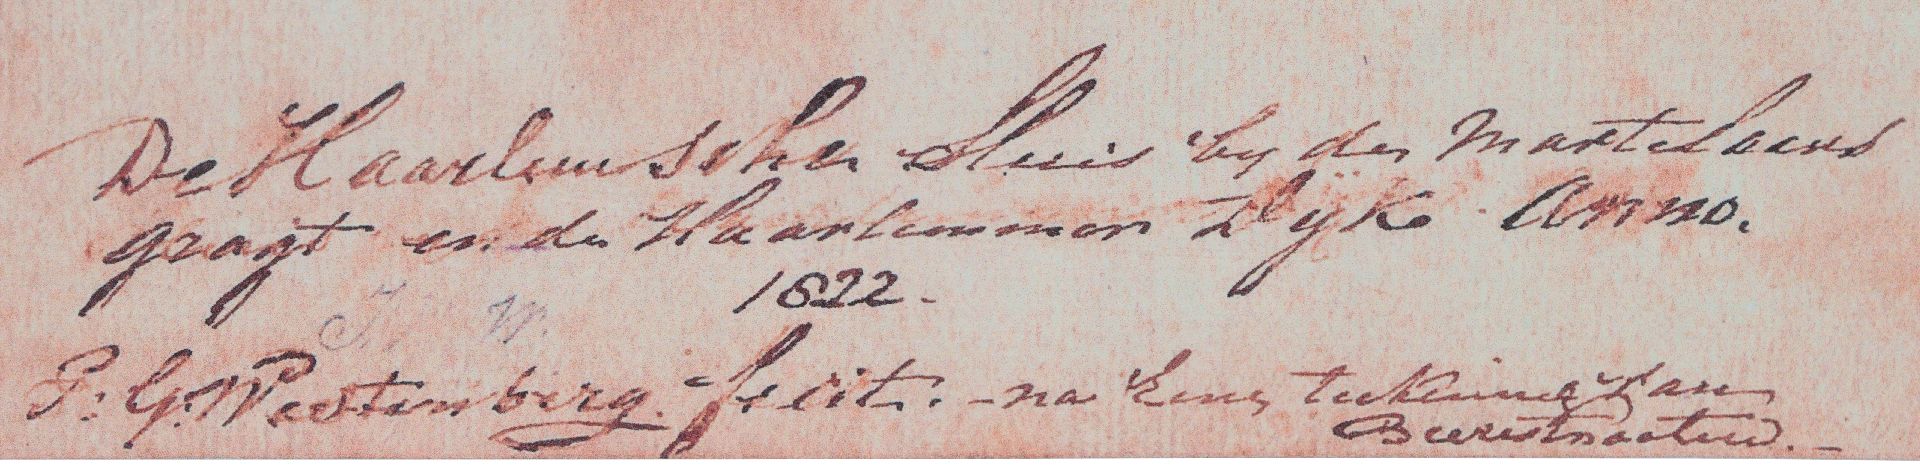 De Haarlemsche Sluis by de Martelaars
gragt en de Haarlemmer Dyk Anno.
1622.
P: G. Westenberg. fecit. na Eene teekening van
Beerestraaten.